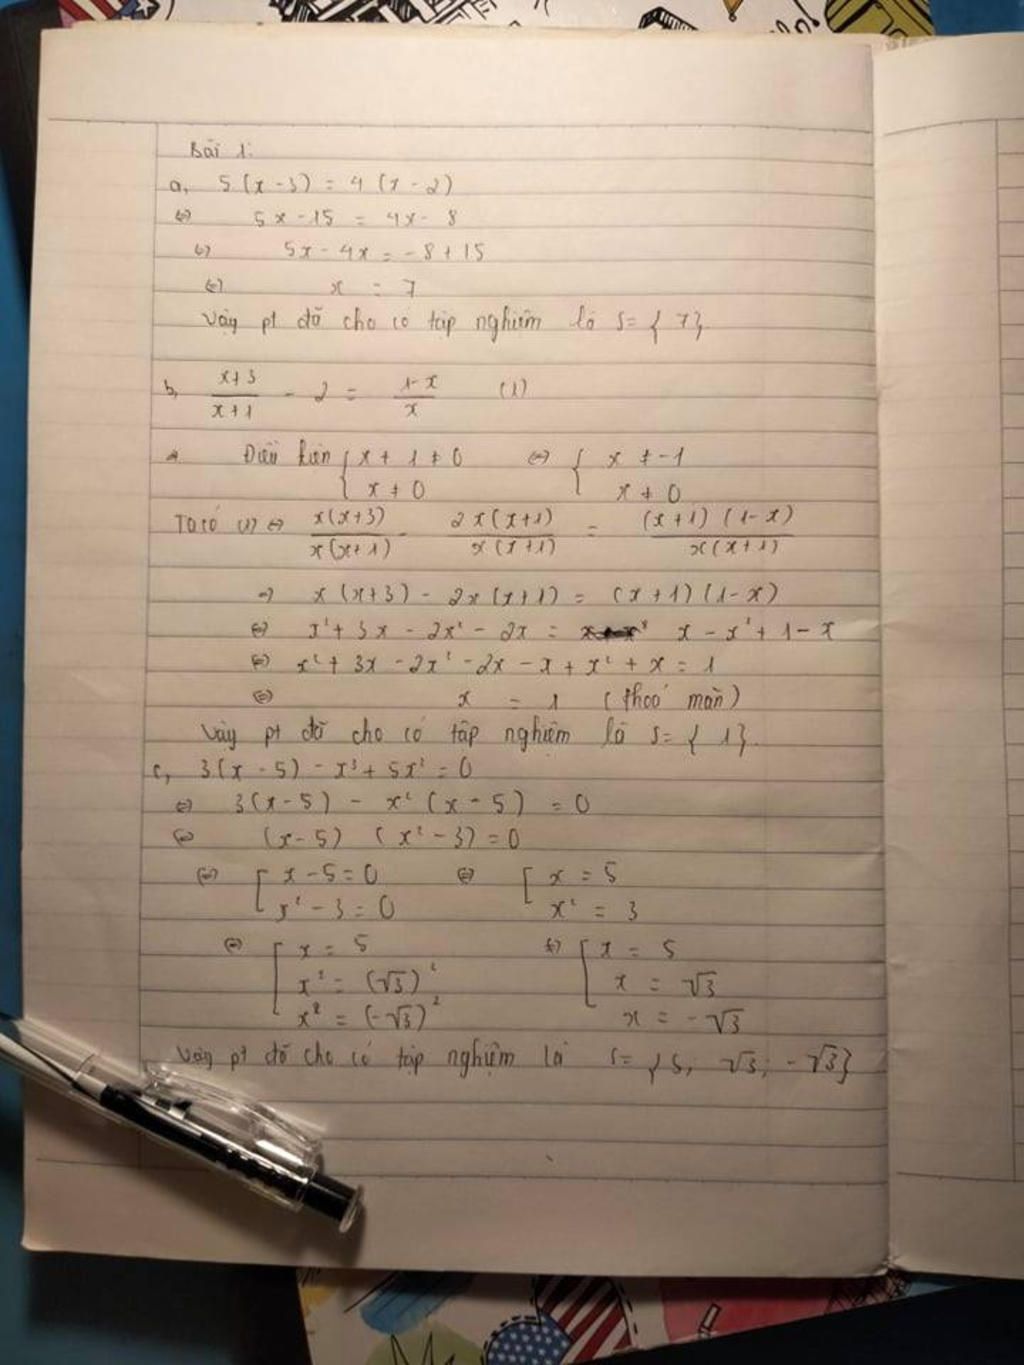 Bài 1:
a, 5(x-3) = 4(x-2)
⇔ 5x-15 = 4x-8
⇔ 5x-4x = -8+15
⇔ x = 7
Vậy pt đã cho có tập nghiệm là S= {7}
b, (x+3)/(x+1) - 2 = (1-x)/x (1)
Điều kiện { x+1≠0 ⇔ { x≠-1
x≠0 x≠0
Ta có (1) ⇔ x(x+3)/x(x+1) - 2x(x+1)/x(x+1) = (x+1)(1-x)/x(x+1)
⇒ x(x+3) - 2x(x+1) = (x+1)(1-x)
⇔ x²+3x-2x²-2x = x-x²+1-x
⇔ x²+3x-2x²-2x-x+x²+x = 1
⇔ x = 1 (thoả mãn)
Vậy pt đã cho có tập nghiệm là S= {1}.
c, 3(x-5) - x³+5x² = 0
⇔ 3(x-5) - x²(x-5) = 0
⇔ (x-5) (x²-3) = 0
⇔ [ x-5=0 ⇔ [ x = 5
x²-3=0 x² = 3
⇔ [ x = 5 ⇔ [ x = 5
x² = (√3)² x = √3
x² = (-√3)² x = -√3
Vậy pt đã cho có tập nghiệm là S= {5; √3; -√3}